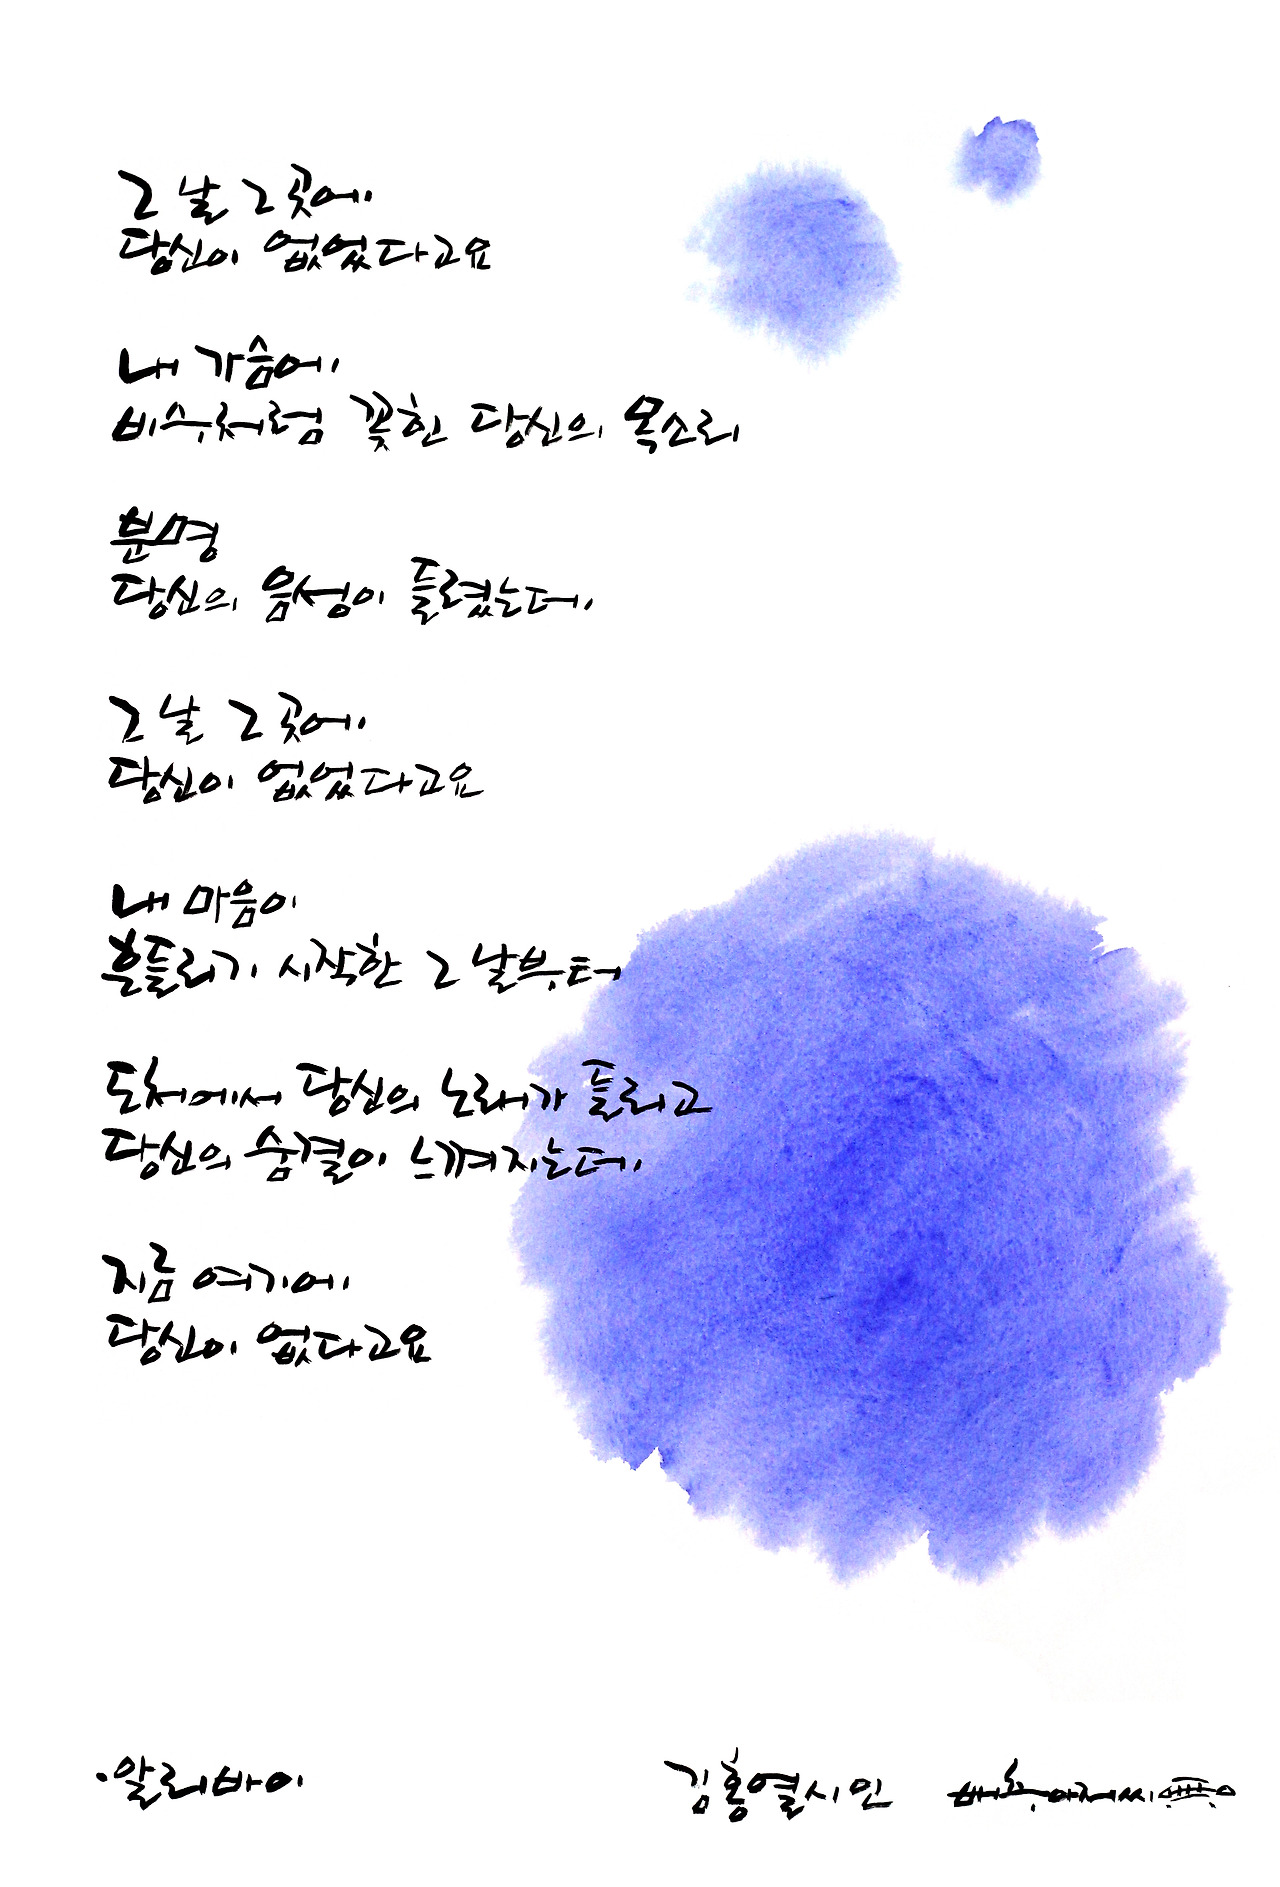 그 날 그 곳에
당신이 없었다고요
내 가슴에
비수처럼 꽂힌 당신의 목소리
분명
당신의 음성이 들렸는데
그 날 그 곳에
당신이 없었다고요
내 마음이
흔들리기 시작한 그 날부터
도처에서 당신의 노래가 들리고
당신의 숨결이 느껴지는데
지금 여기에
당신이 없다고요
·알리바이
김홍열시인 배추아저씨